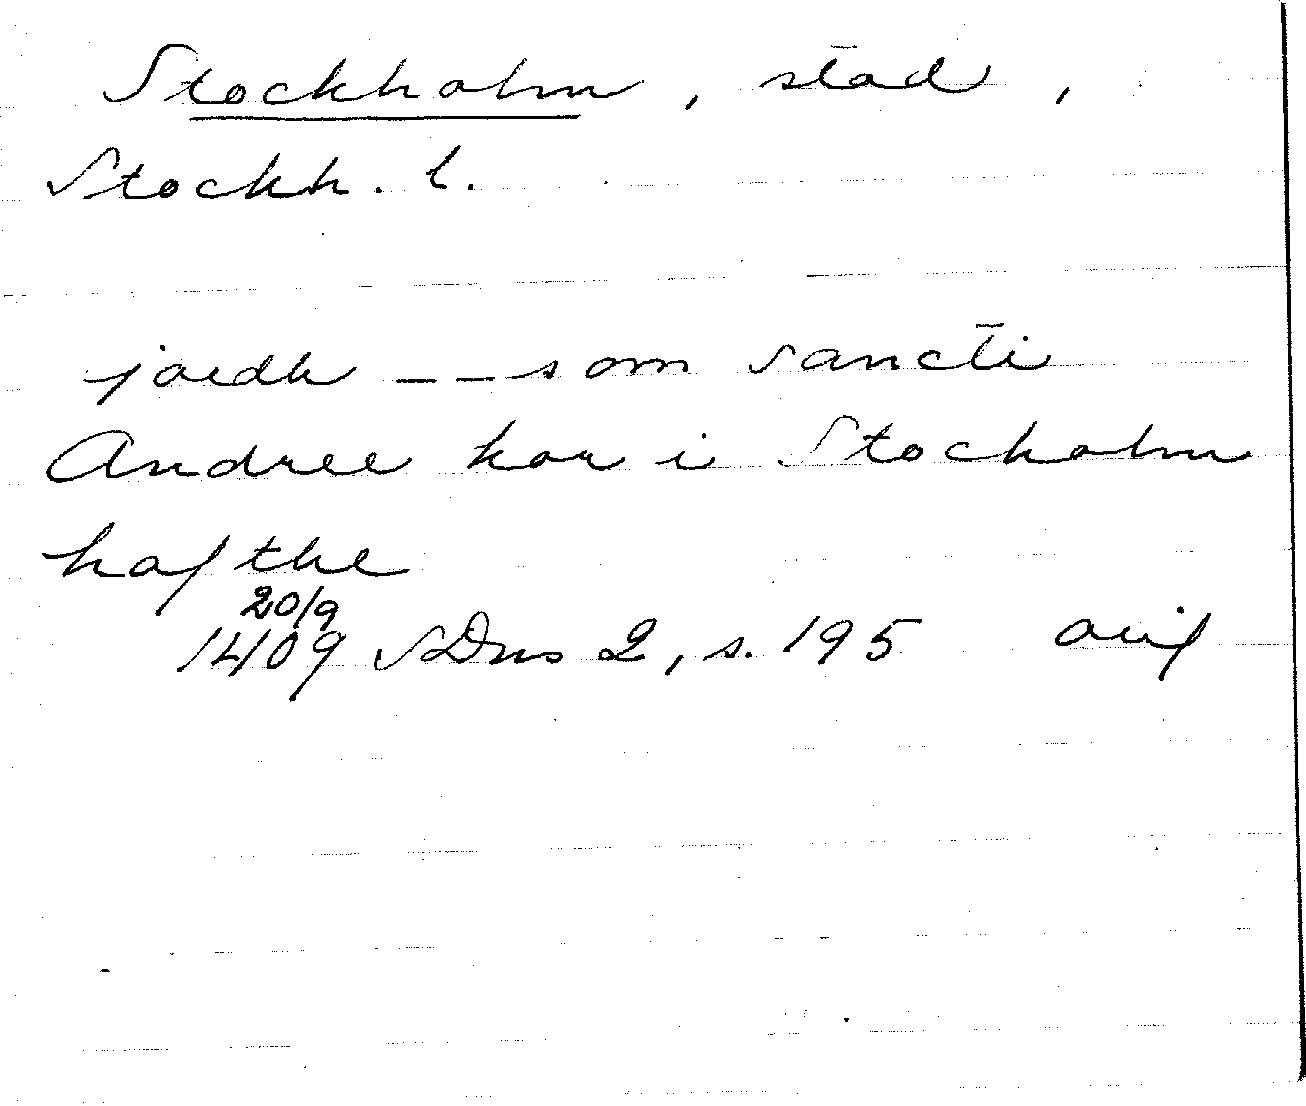 Stockholm, stad,
Stockh. l.
jordh _ _ som sancti
Andree kor i Stocholm
hafthe
20/9
1409 SDns 2, s. 195